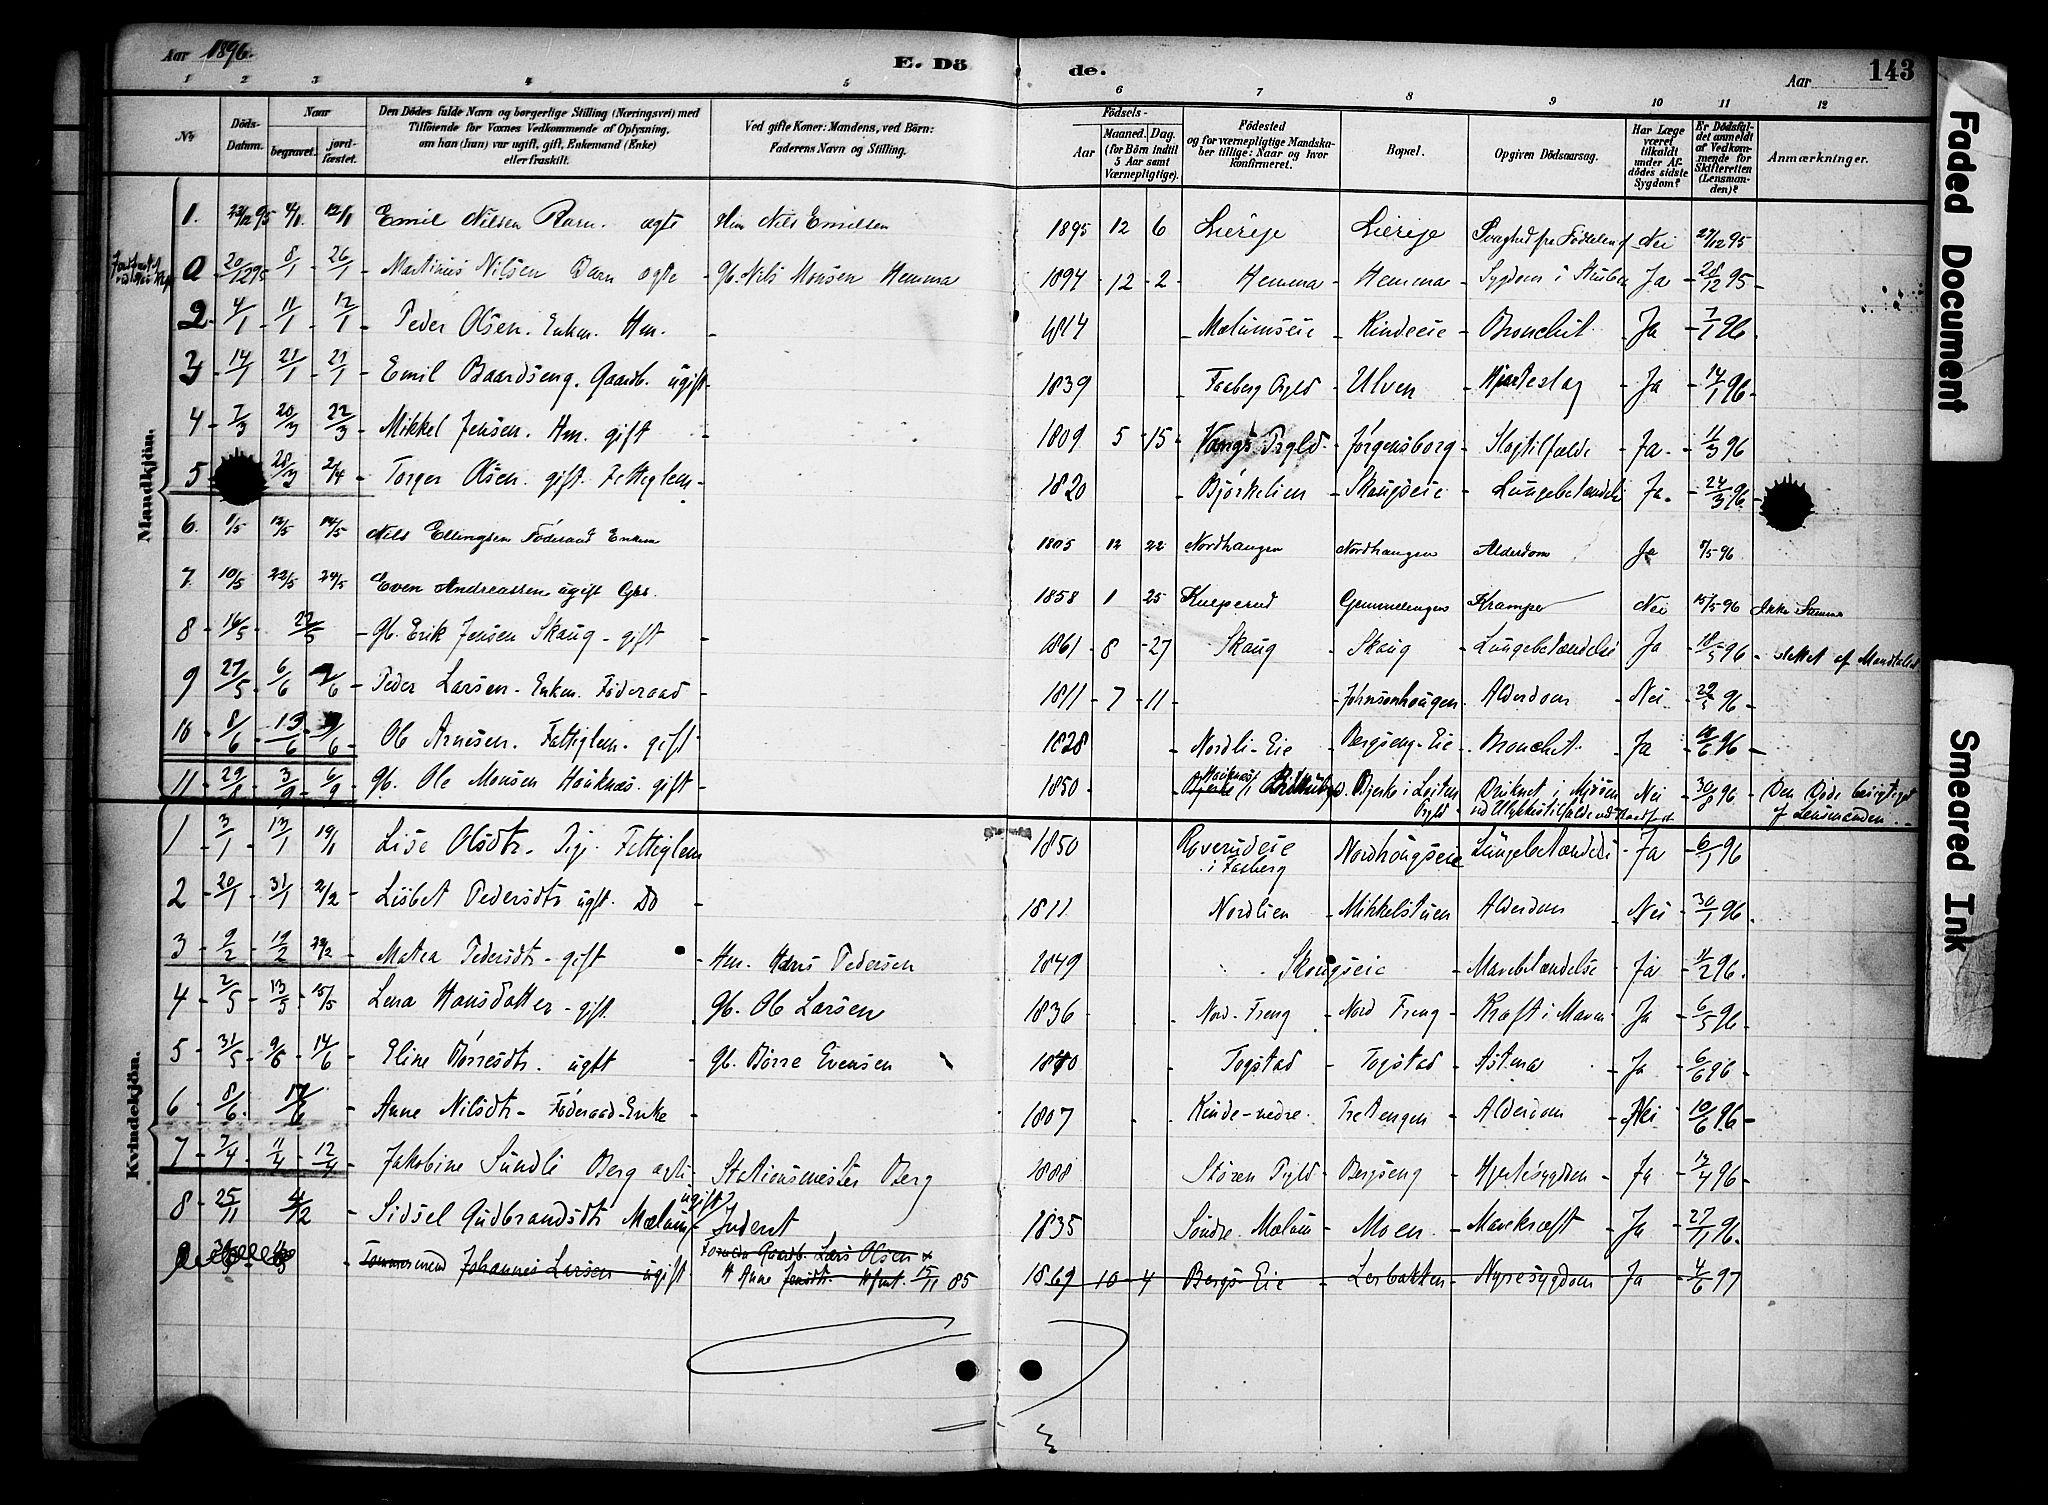 Aar 1896.
E. Dö de.
Aar
143
1 2 3 4 5 6 7 8 9 10 11 12
No
Döds-Datum.
Naar
begravet.
jord-fæstet.
Den Dödes fulde Navn og borgerlige Stilling (Næringsvei) med
Tilföiende for Voxnes Vedkommende af Oplysning,
om han (hun) var ugift, gift, Enkemand (Enke)
eller fraskilt.
Ved gifte Koner: Mandens, ved Börn:
Faderens Navn og Stilling.
Födsels-
Aar
Maaned. Dag.
(for Börn indtil
5 Aar samt
Værnepligtige).
Födested
og for værnepligtige Mandska-
ber tillige: Naar og hvor
konfirmeret.
Bopæl.
Opgiven Dödsaarsag.
Har Læge
været
tilkaldt
under Af-
dödes sidste
Sygdom?
Er Dödsfal-
det anmeldt
af Vedkom-
mende for
Skifteretten
(Lensman-
den)?
Anmærkninger.
Mandkjön.
1. 23/12 95 4/1 12/1 Emil Nilsen Barn. ægte Hm Nils Emilsen 1895 12 6 Liereje Liereje Svaghed fra Födselen af Nei 27/12 95
0 20/12 95 8/1 26/1 Martinus Nilsen Barn ægte Gb. Nils Monsen Hemma 1894 12 2 Hemma Hemma Sygdom i Ja 28/12 95
2 4/1 11/1 12/1 Peder Olsen. Enkm. Hm. 1814 Mælumseie Kindeeie Bronchit Ja 7/1 96
3 14/1 21/1 21/1 Emil Baardseng. Gaardb. ugift 1839 Faaberg Prgld Ulven Hjerteslag Ja 14/1 96
4 7/3 20/3 22/3 Mikkel Jensen. Hm. gift 1809 5 15 Vangs Prgld. Jørgensborg Slagtilfælde Ja. 11/3 96
5 28/3 2/4 Torger Olsen. gift. Fattiglem 1820 Bjørkelien Skaugseie Lungebetændelse Ja. 24/3 96.
6. 1/5 13/5 14/5 Nils Ellingsen Föderaad Enkem 1805 12 22 Nordhaugen Nordhaugen Alderdom Ja 7/5 96
7. 10/5 22/5 24/5 Even Andreassen ugift Gbs. 1858 1 25 Kulperud Gemmelengen Kramper Nei 15/5 96
8 16/5 22/5 Gb. Erik Jensen Skaug gift 1861 8 27 Skaug Skaug Lungebetændelse Ja 18/5 96 slettet af Mandtallet
9 27/5 6/6 7/6 Peder Larsen. Enkem. Föderaad 1811 7 11 Johnsenhougen Alderdom Nei 29/5 96
10 8/6 13/6 Ole Arnesen. Fattiglem. gift 1828 Nordli-Eie Bergseng-Eie Bronchit Ja 96
11 29/8 3/9 6/9 Gb. Ole Monsen Houknæs. gift 1850 Houknæs / Biri Bjerke i Løiten Prgld Druknet i Mjøsen ved Ulykkestilfælde Nei 30/8 96 Den Döde besigtiget
af Lensmanden.
Kvindekjön.
1 3/1 13/1 19/1 Lise Olsdtr. Pige. Fattiglem 1850 Roverudeie i Faaberg Nordhougseie Lungebetændelse Ja 6/1 96
2 20/1 31/1 2/2 Lisbet Pedersdtr ugft. Do 1811. Nordlien Mikkelstuen Alderdom Nei 30/1 96
3 9/2 19/2 Matea Pedersdtr gift Hm. Hans Pedersen 1849 Skougseie Mavebetændelse Ja 11/2 96.
4 2/5 13/5 15/5 Lena Hansdatter gift. Gb. Ole Larsen 1836 Nord-Freng Nord Freng Kræft i Maven Ja 6/5 96
5 31/5 9/6 14/6 Eline Børresdtr. ugft Gb. Børre Evensen 1840 Togstad Togstad Astma Ja 6/6 96
6 8/6. Anne Nilsdtr Föderaad-Enke 1807 Kinde-nedre. Tretengen Alderdom Nei 10/6 96
7 7/4 11/4 12/4 Jakobine Sundli Berg ægte Stationsmester Berg 1888 Støren Prgld Bergseng Hjertesygdom Ja 13/4 96
8 25/11 4/12 Sidsel Gudbrandsdtr Mælum ugift? Inderst 1835 Søndre Mælum Moen Mavekræft Ja 27/11 96
Tømmermand Johannes Larsen ugift Gaardb. Lars Olsen
Anne Jensdtr. 15/11 85 1869 10 4 Bergs Eie Lerbakken Nyresygdom Ja 4/6 97
Faded Document
Smeared Ink